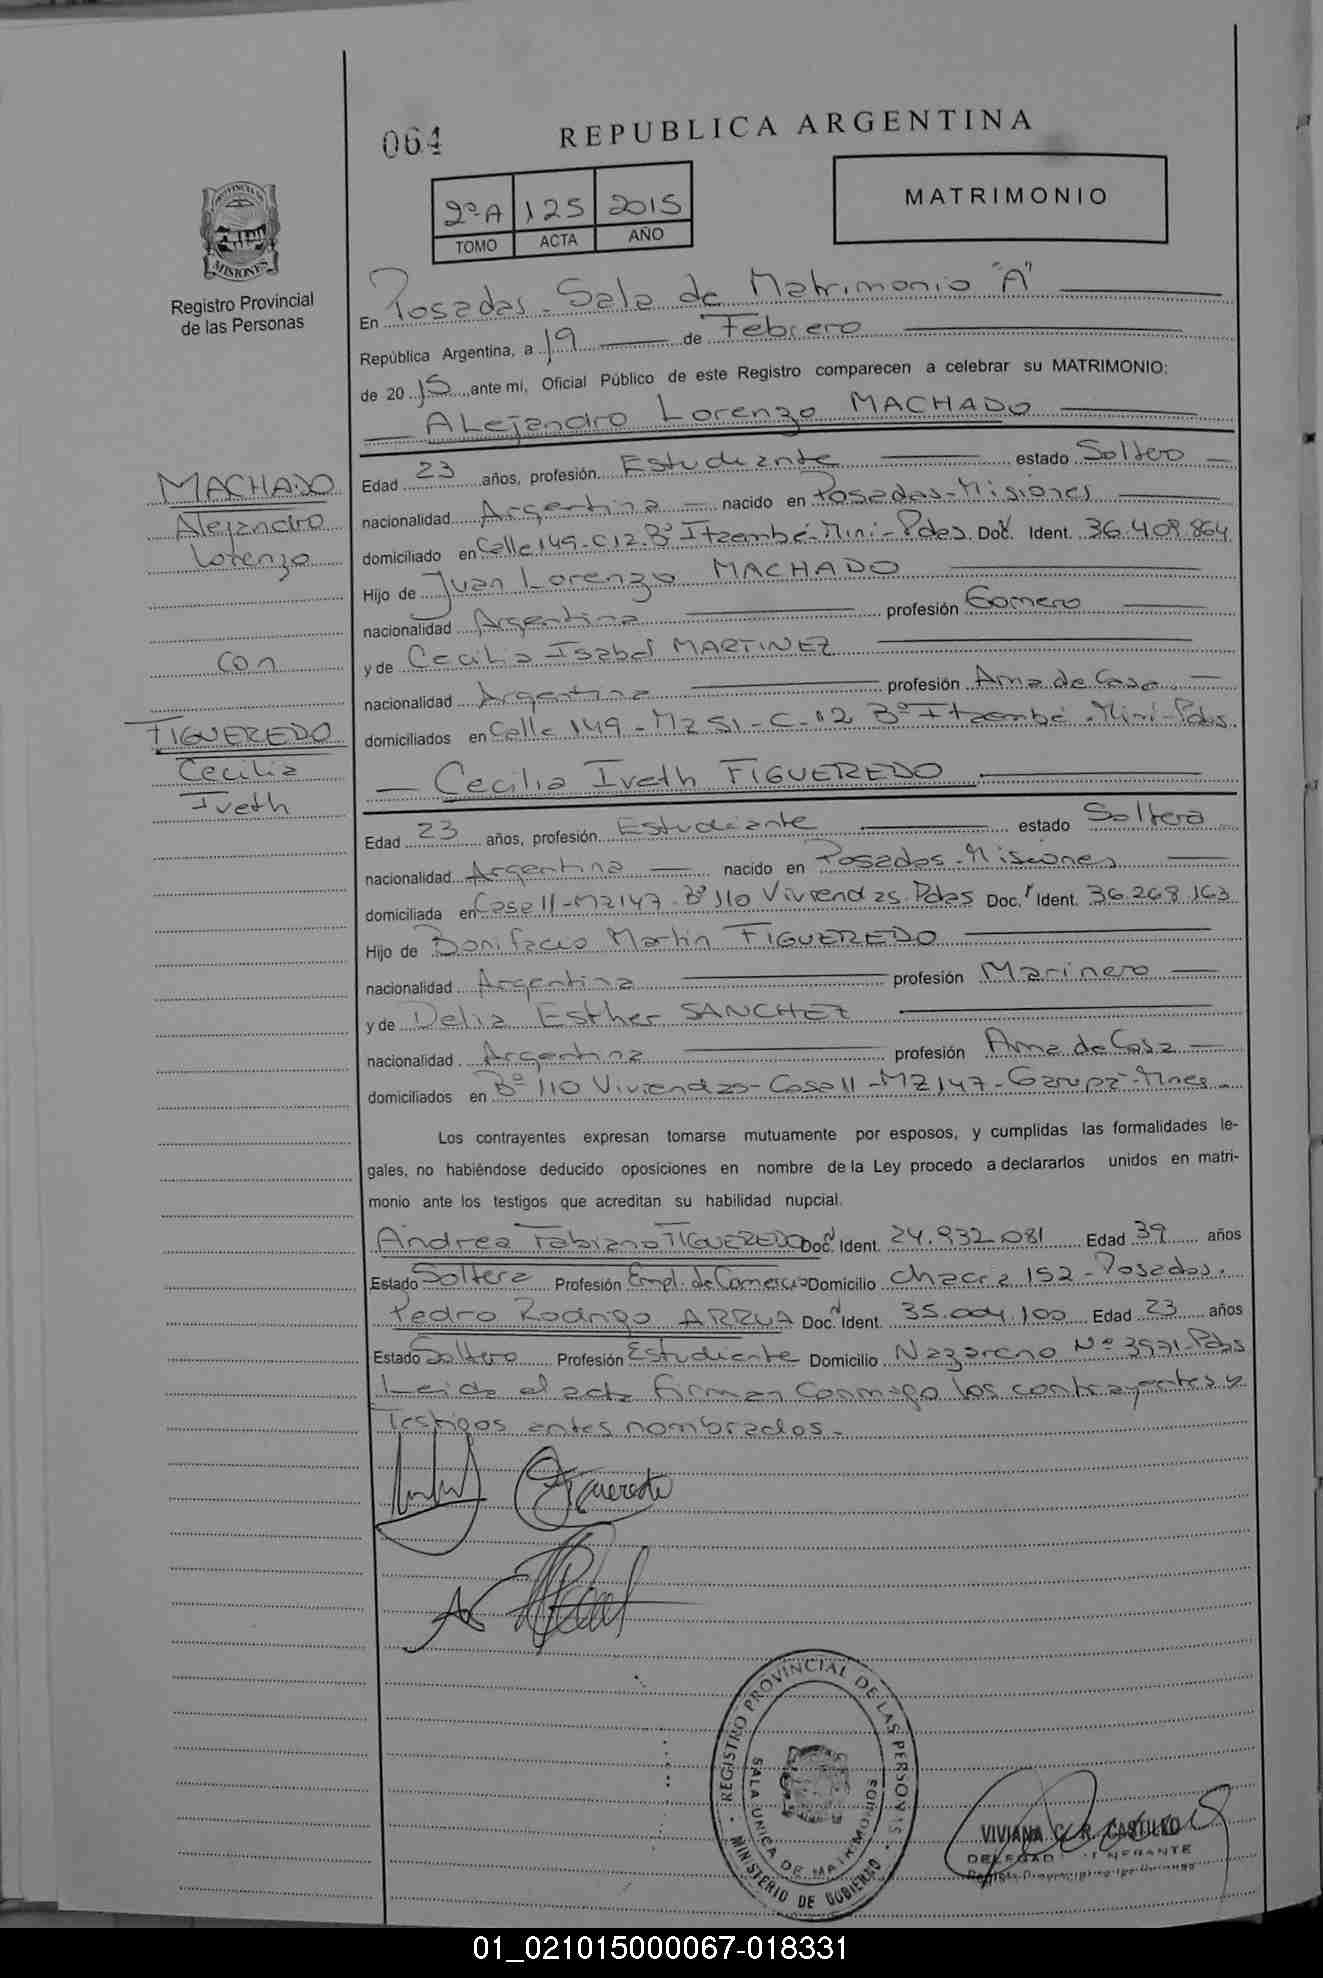 064
REPUBLICA ARGENTINA
PROVINCIA DE
MISIONES
Registro Provincial
de las Personas
2º A 125 2015
TOMO ACTA AÑO
MATRIMONIO
En Posadas - Sala de Matrimonio "A"
República Argentina, a 19 de Febrero
de 2015 ante mí, Oficial Público de este Registro comparecen a celebrar su MATRIMONIO:
Alejandro Lorenzo MACHADO
MACHADO
Alejandro
Lorenzo
con
FIGUEREDO
Cecilia
Iveth
Edad 23 años, profesión Estudiante estado Soltero
nacionalidad Argentina nacido en Posadas - Misiones
domiciliado en Calle 149 - C 12 - Bº Itaembé - Mini - Pdas Doc. Ident. 36.409.864
Hijo de Juan Lorenzo MACHADO
nacionalidad Argentina profesión Gomero
y de Cecilia Isabel MARTINEZ
nacionalidad Argentina profesión Ama de Casa
domiciliados en Calle 149 - Mz 51 - C - 12 Bº Itaembé - Mini - Pdas
Cecilia Iveth FIGUEREDO
Edad 23 años, profesión Estudiante estado Soltera
nacionalidad Argentina nacido en Posadas - Misiones
domiciliada en Casa 11 - Mz 147 - Bº 110 Viviendas - Pdas Doc. Ident. 36.268.163
Hijo de Bonifacio Martin FIGUEREDO
nacionalidad Argentina profesión Marinero
y de Delia Esther SANCHEZ
nacionalidad Argentina profesión Ama de Casa
domiciliados en Bº 110 Viviendas - Casa 11 - Mz 147 - Garupá - Mnes -
Los contrayentes expresan tomarse mutuamente por esposos, y cumplidas las formalidades le-
gales, no habiéndose deducido oposiciones en nombre de la Ley procedo a declararlos unidos en matri-
monio ante los testigos que acreditan su habilidad nupcial.
Andrea Fabiana FIGUEREDO Doc. Ident. 24.932.081 Edad 39 años
Estado Soltera Profesión Empl. de Comercio Domicilio chacra 152 - Posadas.
Pedro Rodrigo ARRUA Doc. Ident. 35.004.100 Edad 23 años
Estado Soltero Profesión Estudiante Domicilio Nazareno Nº 3971 - Pdas
Leida el acta firman conmigo los contrayentes y
Testigos antes nombrados.-
Figueredo
REGISTRO PROVINCIAL DE LAS PERSONAS
SALA UNICA DE MATRIMONIOS
MINISTERIO DE GOBIERNO
VIVIANA C. R. CASTILLO
01_021015000067-018331